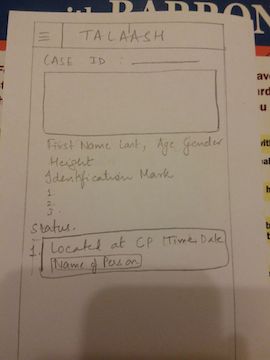 with BARRON
TALAASH
CASE ID :
First Name Last, Age Gender
Height
Identification Mark
1
2.
3.
Status.
1. Located at CP Time Date
Name of Person